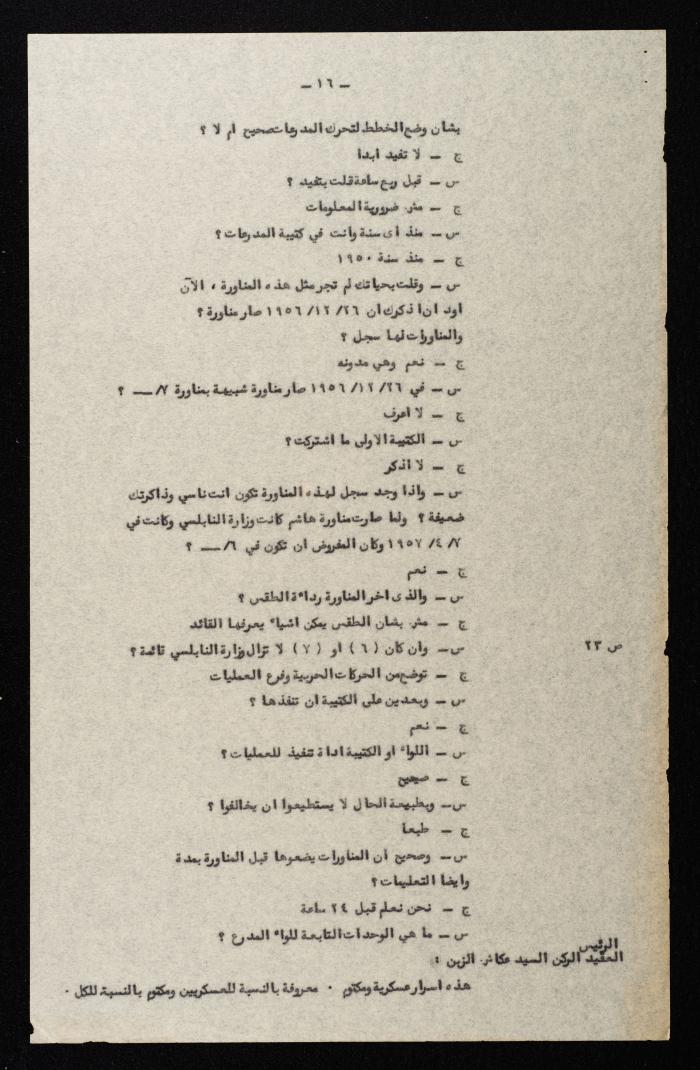 – ١٦ –
بشأن وضع الخطط لتحرك المدرعات صحيح ام لا ؟
ج – لا تفيد ابدا
س – قبل ربع ساعة قلت بتفيد ؟
ج – مش ضرورية المعلومات
س – منذ اى سنة وانت في كتيبة المدرعات ؟
ج – منذ سنة ١٩٥٠
س – وقلت بحياتك لم تجر مثل هذه المناورة ، الآن
اود ان اذكرك ان ٢٦/ ١٢/ ١٩٥٦ صار مناورة ؟
والمناورات لها سجل ؟
ج – نعم وهي مدونه
س – في ٢٦/ ١٢/ ١٩٥٦ صار مناورة شبيهة بمناورة ٧/ — ؟
ج – لا اعرف
س – الكتيبة الاولى ما اشتركت ؟
ج – لا اذكر
س – واذا وجد سجل لهذه المناورة تكون انت ناسي وذاكرتك
ضعيفة ؟ ولما صارت مناورة هاشم كانت وزارة النابلسي وكانت في
٧/ ٤/ ١٩٥٧ وكان المفروض ان تكون في ٦/ — ؟
ج – نعم
س – والذى اخر المناورة رداءة الطقس ؟
ج – مش بشأن الطقس يمكن اشياء يعرفها القائد
ص ٢٣
س – وان كان ( ٦ ) او ( ٧ ) لا تزال وزارة النابلسي قائمة ؟
ج – توضع من الحركات الحربية وفرع العمليات
س – وبعدين على الكتيبة ان تنفذها ؟
ج – نعم
س – اللواء او الكتيبة اداة تنفيذ للعمليات ؟
ج – صحيح
س – وبطبيعة الحال لا يستطيعوا ان يخالفوا ؟
ج – طبعا
س – وصحيح ان المناورات يضعوها قبل المناورة بمدة
وايضا التعليمات ؟
ج – نحن نعلم قبل ٢٤ ساعة
س – ما هي الوحدات التابعة للواء المدرع ؟
الرئيس
العقيد الركن السيد عكاش الزبن :
هذه اسرار عسكرية ومكتوم . معروفة بالنسبة للعسكريين ومكتوم بالنسبة للكل .